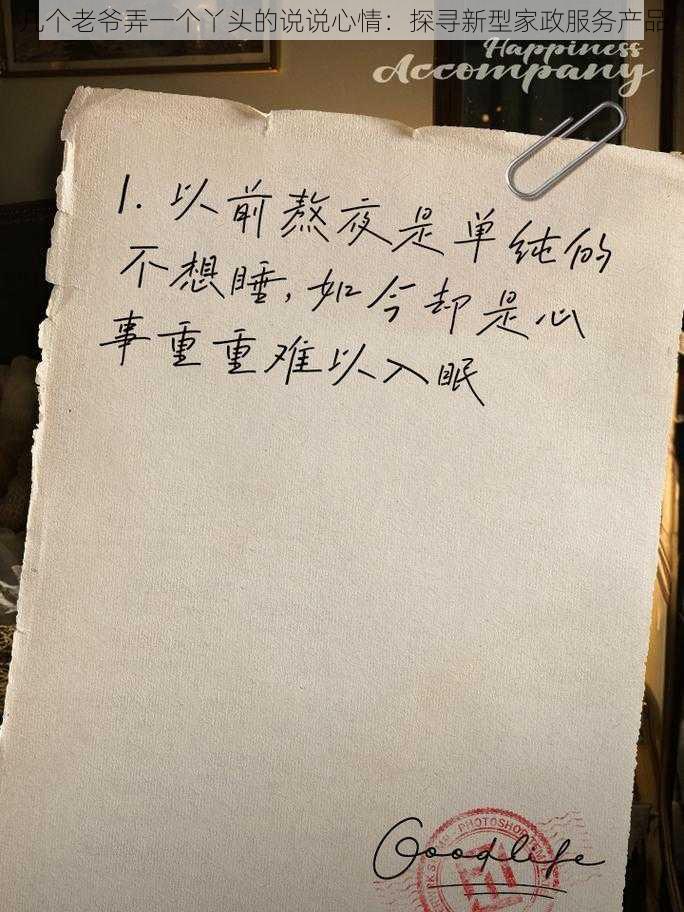 几个老爷弄一个丫头的说说心情：探寻新型家政服务产品
Happiness
Accompany
1. 以前熬夜是单纯的
不想睡，如今却是心
事重重难以入眠
PHOTOSHOP
Goodlife